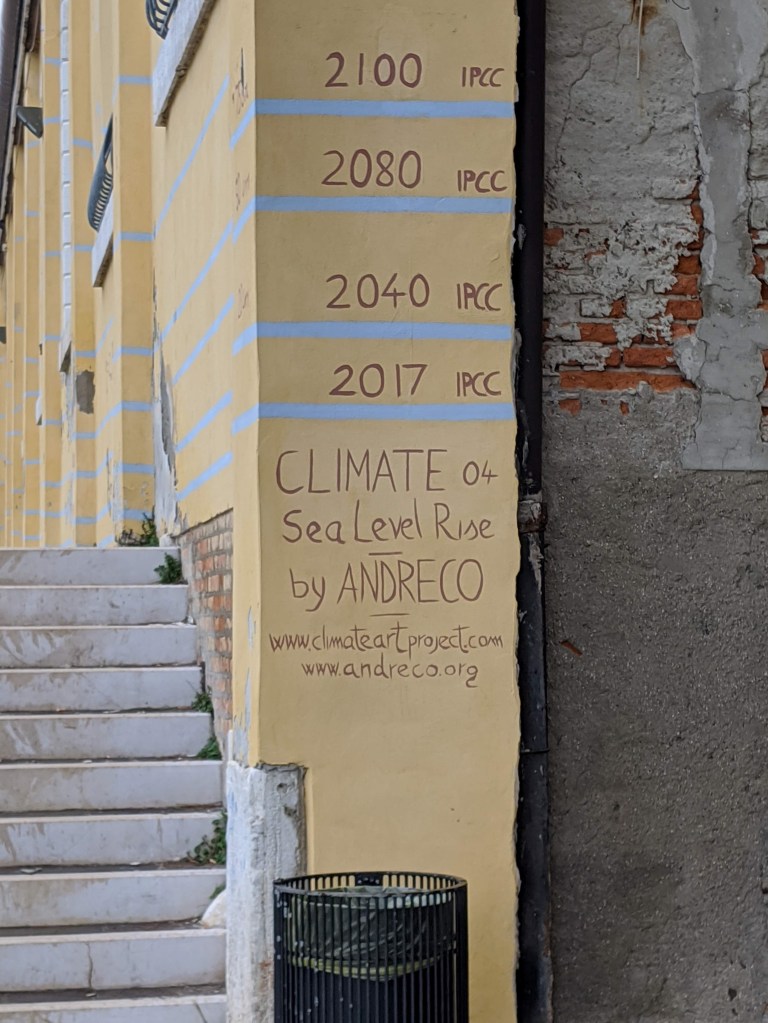 2100 IPCC
2080 IPCC
2040 IPCC
2017 IPCC
CLIMATE 04
Sea Level Rise
by ANDRECO
www.climateartproject.com
www.andreco.org